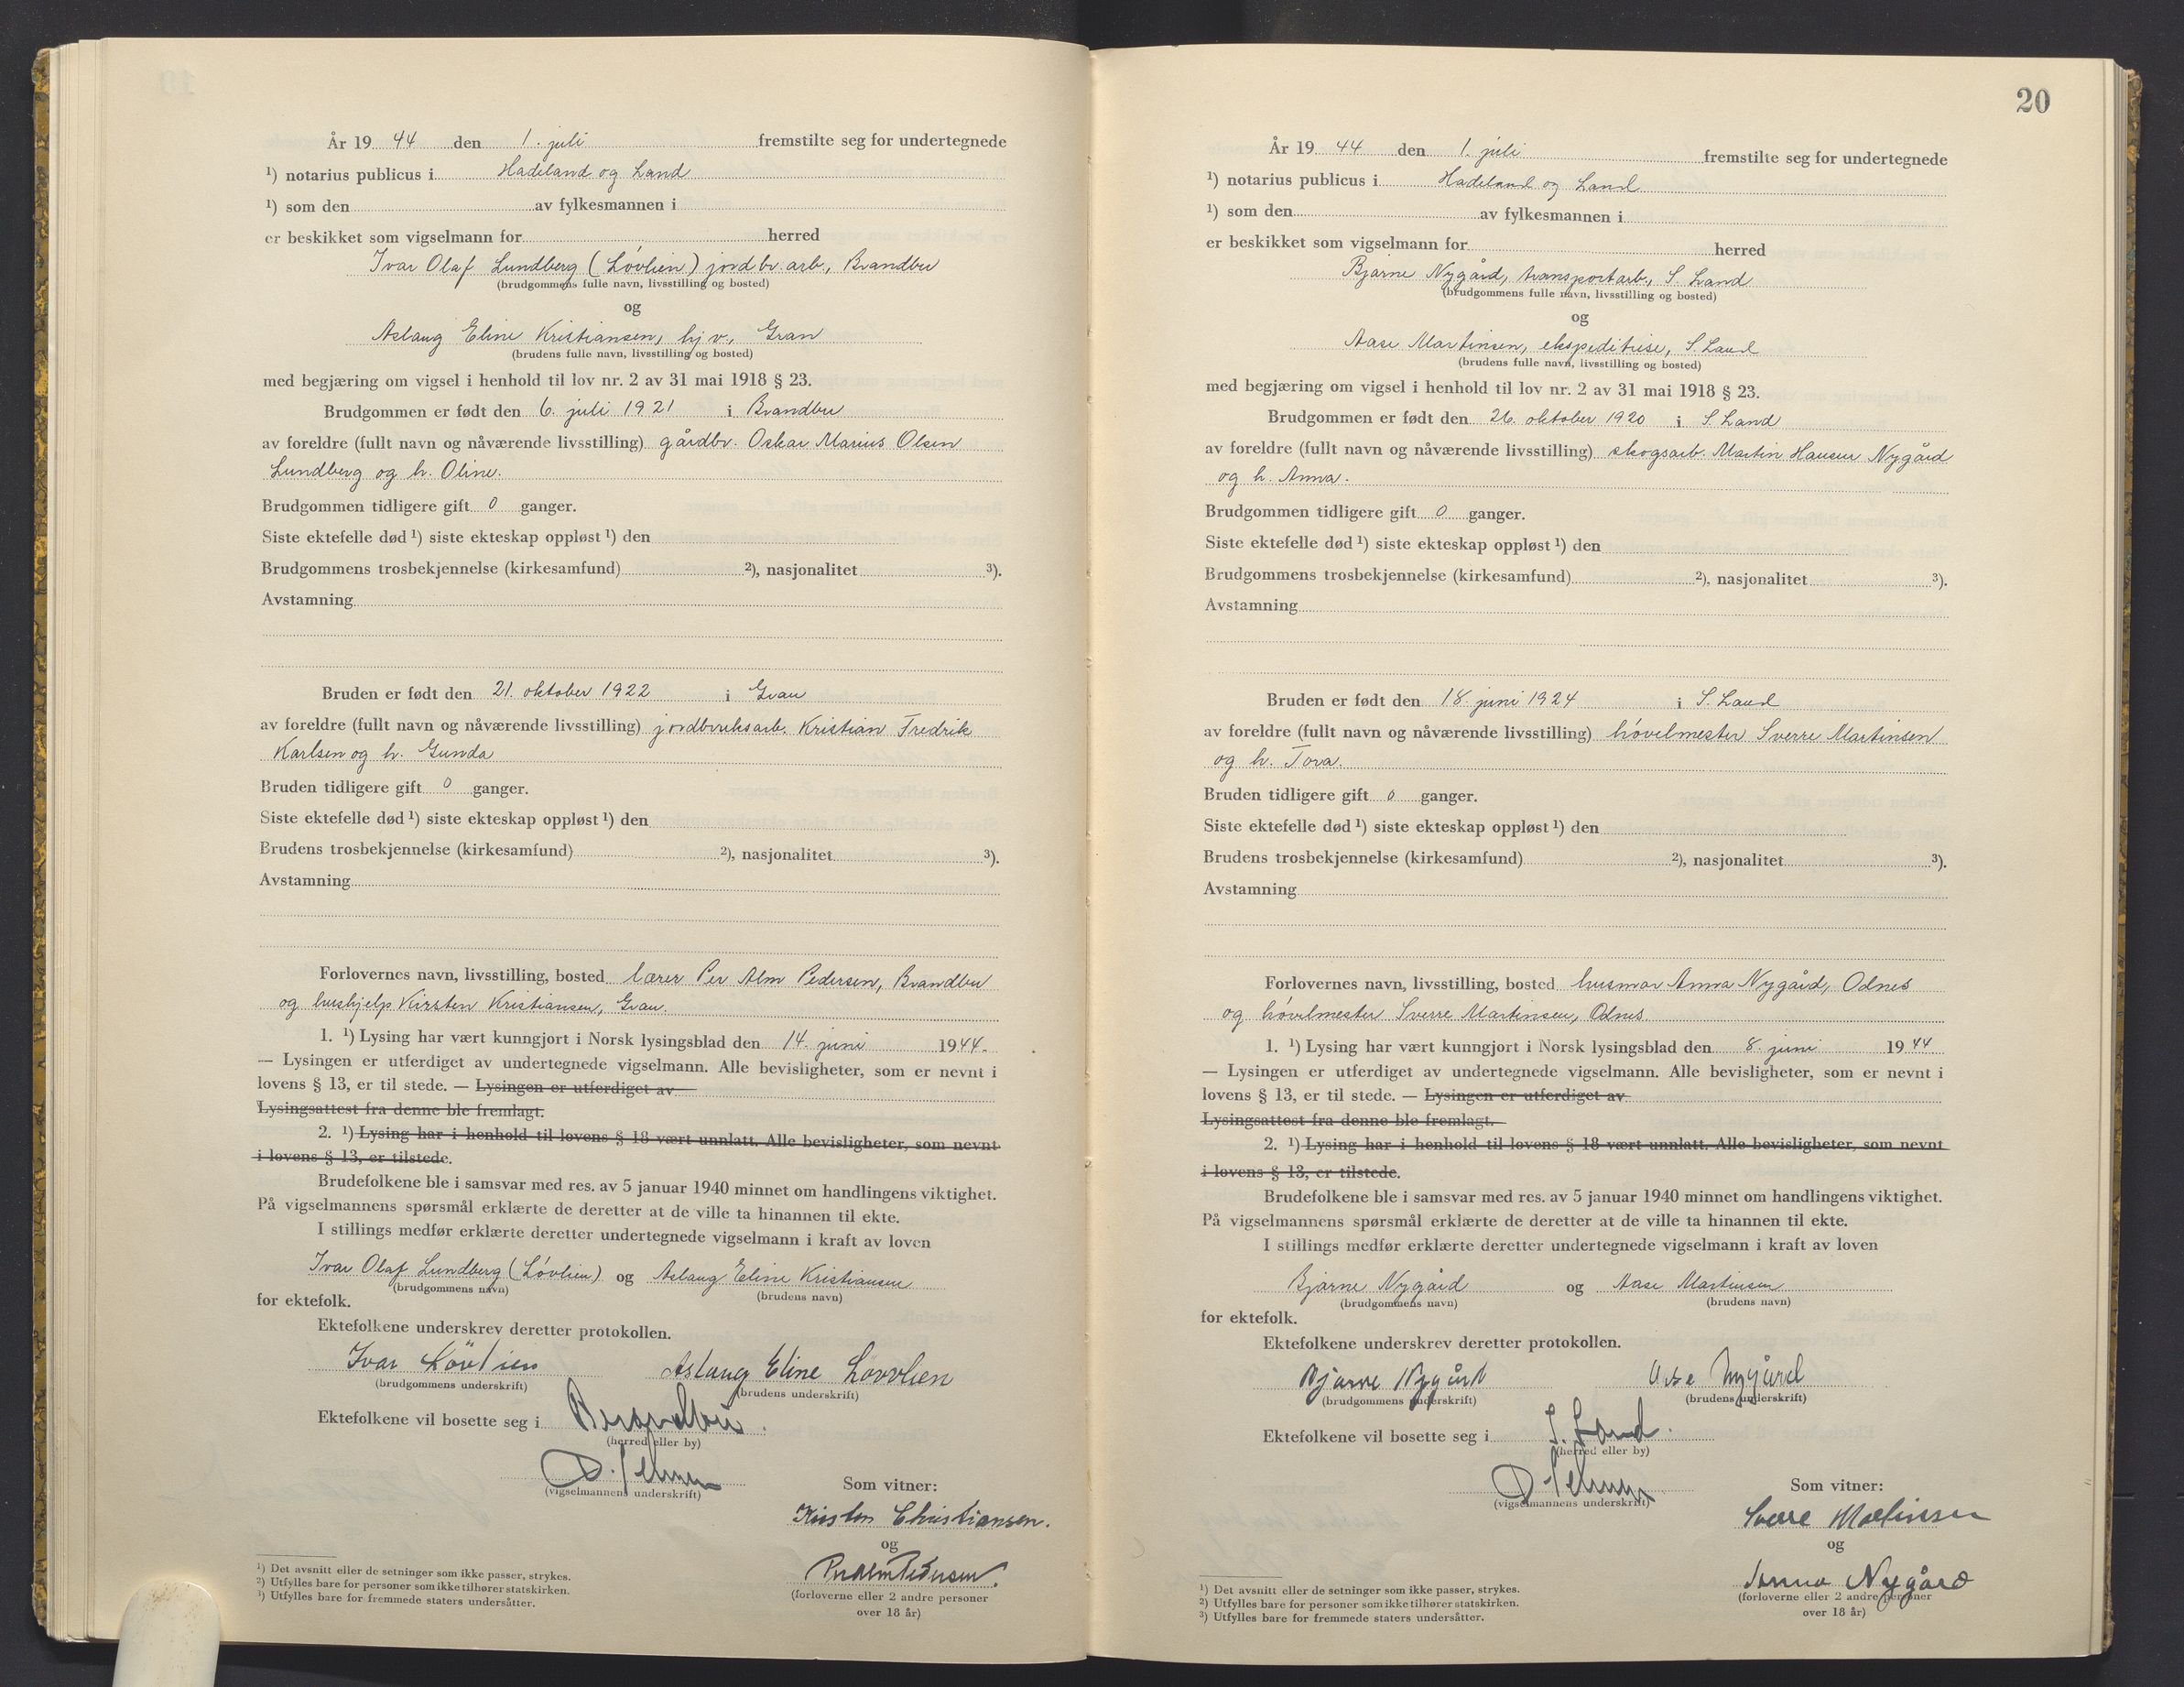 År 19 44 den 1. juli fremstilte seg for undertegnede
¹) notarius publicus i Hadeland og Land
¹) som den av fylkesmannen i
er beskikket som vigselmann for herred
Ivar Olaf Lundberg (Lövlien) jordbr.arb., Brandbu
(brudgommens fulle navn, livsstilling og bosted)
og
Aslaug Eline Kristiansen, hj.v., Gran
(brudens fulle navn, livsstilling og bosted)
med begjæring om vigsel i henhold til lov nr. 2 av 31 mai 1918 § 23.
Brudgommen er født den 6. juli 1921 i Brandbu
av foreldre (fullt navn og nåværende livsstilling) gårdbr. Oskar Marius Olsen
Lundberg og h. Oline.
Brudgommen tidligere gift 0 ganger.
Siste ektefelle død ¹) siste ekteskap oppløst ¹) den
Brudgommens trosbekjennelse (kirkesamfund) ²), nasjonalitet ³).
Avstamning
Bruden er født den 21. oktober 1922 i Gran
av foreldre (fullt navn og nåværende livsstilling) jordbruksarb. Kristian Fredrik
Karlsen og h. Gunda
Bruden tidligere gift 0 ganger.
Siste ektefelle død ¹) siste ekteskap oppløst ¹) den
Brudens trosbekjennelse (kirkesamfund) ²), nasjonalitet ³).
Avstamning
Forlovernes navn, livsstilling, bosted lærer Per Alm Pedersen, Brandbu
og hushjelp Kirsten Kristiansen, Gran.
1. ¹) Lysing har vært kunngjort i Norsk lysingsblad den 14. juni 1944.
— Lysingen er utferdiget av undertegnede vigselmann. Alle bevisligheter, som er nevnt i
lovens § 13, er til stede. — Lysingen er utferdiget av
Lysingsattest fra denne ble fremlagt.
2. ¹) Lysing har i henhold til lovens § 18 vært unnlatt. Alle bevisligheter, som nevnt
i lovens § 13, er tilstede.
Brudefolkene ble i samsvar med res. av 5 januar 1940 minnet om handlingens viktighet.
På vigselmannens spørsmål erklærte de deretter at de ville ta hinannen til ekte.
I stillings medfør erklærte deretter undertegnede vigselmann i kraft av loven
Ivar Olaf Lundberg (Lövlien) og Aslaug Eline Kristiansen
(brudgommens navn) (brudens navn)
for ektefolk.
Ektefolkene underskrev deretter protokollen.
Ivar Lövlien Aslaug Eline Lövlien
(brudgommens underskrift) (brudens underskrift)
Ektefolkene vil bosette seg i Brandbu.
(herred eller by)
(vigselmannens underskrift)
Som vitner:
Kirsten Christiansen.
og
Per Alm Pedersen.
(forloverne eller 2 andre personer
over 18 år)
¹) Det avsnitt eller de setninger som ikke passer, strykes.
²) Utfylles bare for personer som ikke tilhører statskirken.
³) Utfylles bare for fremmede staters undersåtter.
20
År 19 44 den 1. juli fremstilte seg for undertegnede
¹) notarius publicus i Hadeland og Land
¹) som den av fylkesmannen i
er beskikket som vigselmann for herred
Bjarne Nygård, transportarb., S. Land
(brudgommens fulle navn, livsstilling og bosted)
og
Aase Martinsen, ekspeditrise, S. Land
(brudens fulle navn, livsstilling og bosted)
med begjæring om vigsel i henhold til lov nr. 2 av 31 mai 1918 § 23.
Brudgommen er født den 26. oktober 1920 i S. Land
av foreldre (fullt navn og nåværende livsstilling) skogsarb. Martin Hansen Nygård
og h. Anna.
Brudgommen tidligere gift 0 ganger.
Siste ektefelle død ¹) siste ekteskap oppløst ¹) den
Brudgommens trosbekjennelse (kirkesamfund) ²), nasjonalitet ³).
Avstamning
Bruden er født den 18. juni 1924 i S. Land
av foreldre (fullt navn og nåværende livsstilling) hövelmester Sverre Martinsen
og h. Tova.
Bruden tidligere gift 0 ganger.
Siste ektefelle død ¹) siste ekteskap oppløst ¹) den
Brudens trosbekjennelse (kirkesamfund) ²), nasjonalitet ³).
Avstamning
Forlovernes navn, livsstilling, bosted husmor Anna Nygård, Odnes
og hövelmester Sverre Martinsen, Odnes.
1. ¹) Lysing har vært kunngjort i Norsk lysingsblad den 8. juni 1944
— Lysingen er utferdiget av undertegnede vigselmann. Alle bevisligheter, som er nevnt i
lovens § 13, er til stede. — Lysingen er utferdiget av
Lysingsattest fra denne ble fremlagt.
2. ¹) Lysing har i henhold til lovens § 18 vært unnlatt. Alle bevisligheter, som nevnt
i lovens § 13, er tilstede.
Brudefolkene ble i samsvar med res. av 5 januar 1940 minnet om handlingens viktighet.
På vigselmannens spørsmål erklærte de deretter at de ville ta hinannen til ekte.
I stillings medfør erklærte deretter undertegnede vigselmann i kraft av loven
Bjarne Nygård og Aase Martinsen
(brudgommens navn) (brudens navn)
for ektefolk.
Ektefolkene underskrev deretter protokollen.
Bjarne Nygård Aase Nygård
(brudgommens underskrift) (brudens underskrift)
Ektefolkene vil bosette seg i S. Land.
(herred eller by)
(vigselmannens underskrift)
Som vitner:
Sverre Martinsen
og
Anna Nygård
(forloverne eller 2 andre personer
over 18 år)
¹) Det avsnitt eller de setninger som ikke passer, strykes.
²) Utfylles bare for personer som ikke tilhører statskirken.
³) Utfylles bare for fremmede staters undersåtter.